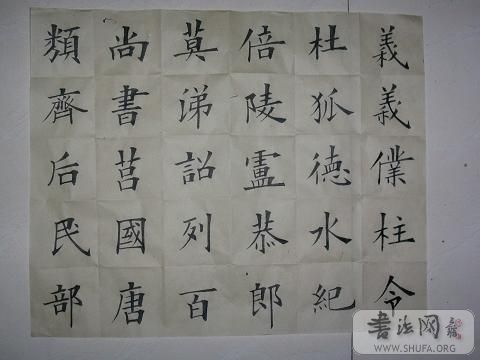 義義僕柱令
杜狐德水紀
倍陵盧恭郎
莫涕詔列百
尚書莒國唐
類齊后民部
書法网
WWW.SHUFA.ORG